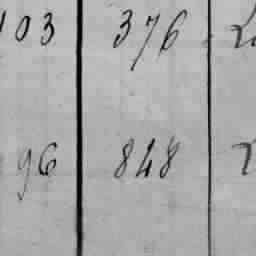 103 376
96 848